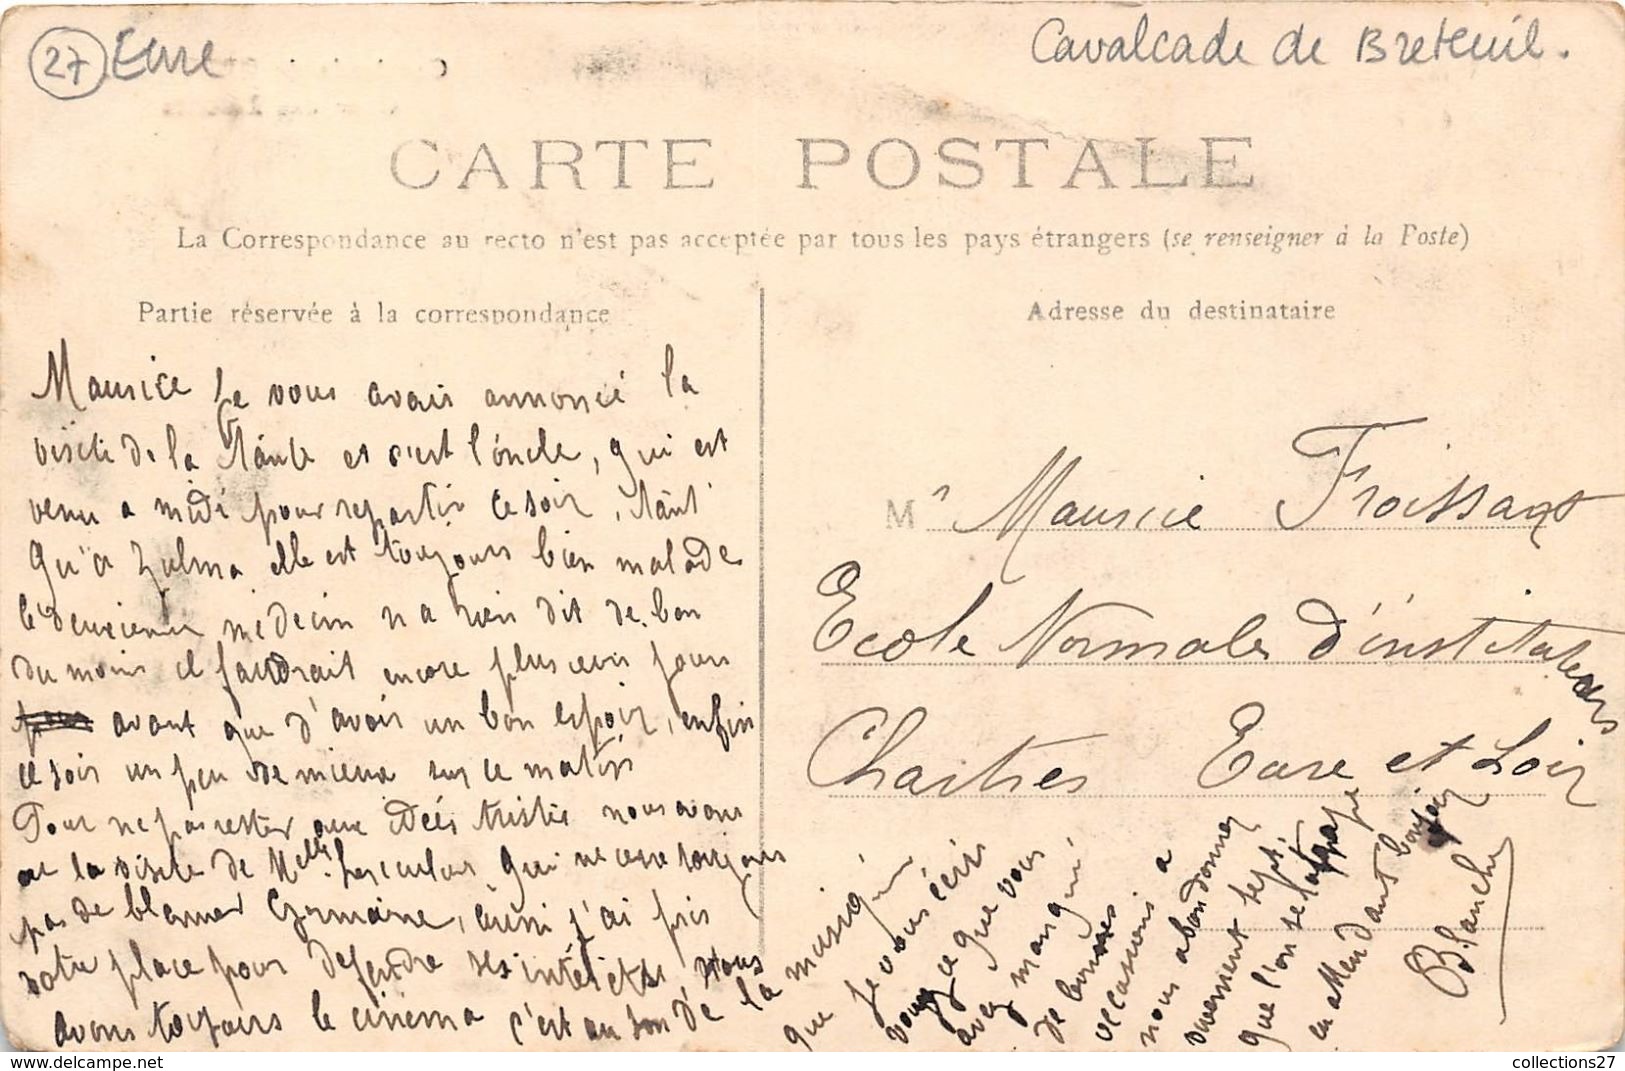 27 Eure
Cavalcade de Breteuil.
CARTE POSTALE
La Correspondance au recto n'est pas acceptée par tous les pays étrangers (se renseigner à la Poste)
Partie réservée à la correspondance
Adresse du destinataire
Maurice Je vous avais annoncé la
visite de la Tânte et c'est l'oncle, qui est
venu a midi pour repartir ce soir, tânt
qu'a Zulma elle est toujours bien malade
le deuxieme médecin n'a rien dit de bon
du moins il faudrait encore plusieurs jours
avant que d'avoir un bon espoir, enfin
ce soir un peu de mieux sur ce matin
Pour ne pas rester aux idées tristes nous avons
eu la visite de Melle qui ne cesse toujours
pas de blamer Germaine, aussi j'ai pris
votre place pour défendre ses intérêts, Nous
avons toujours le cinema c'est au son de la musique
que je vous écris
voyez ce que vous
avez manqué
de bonnes
occasions a
nous abandonner
vivement sept.
que l'on se rattrape
en attendant bonjour
Blanche
Mr Maurice Froissant
Ecole Normale d'instituteurs
Chartres Eure et Loir
collections27